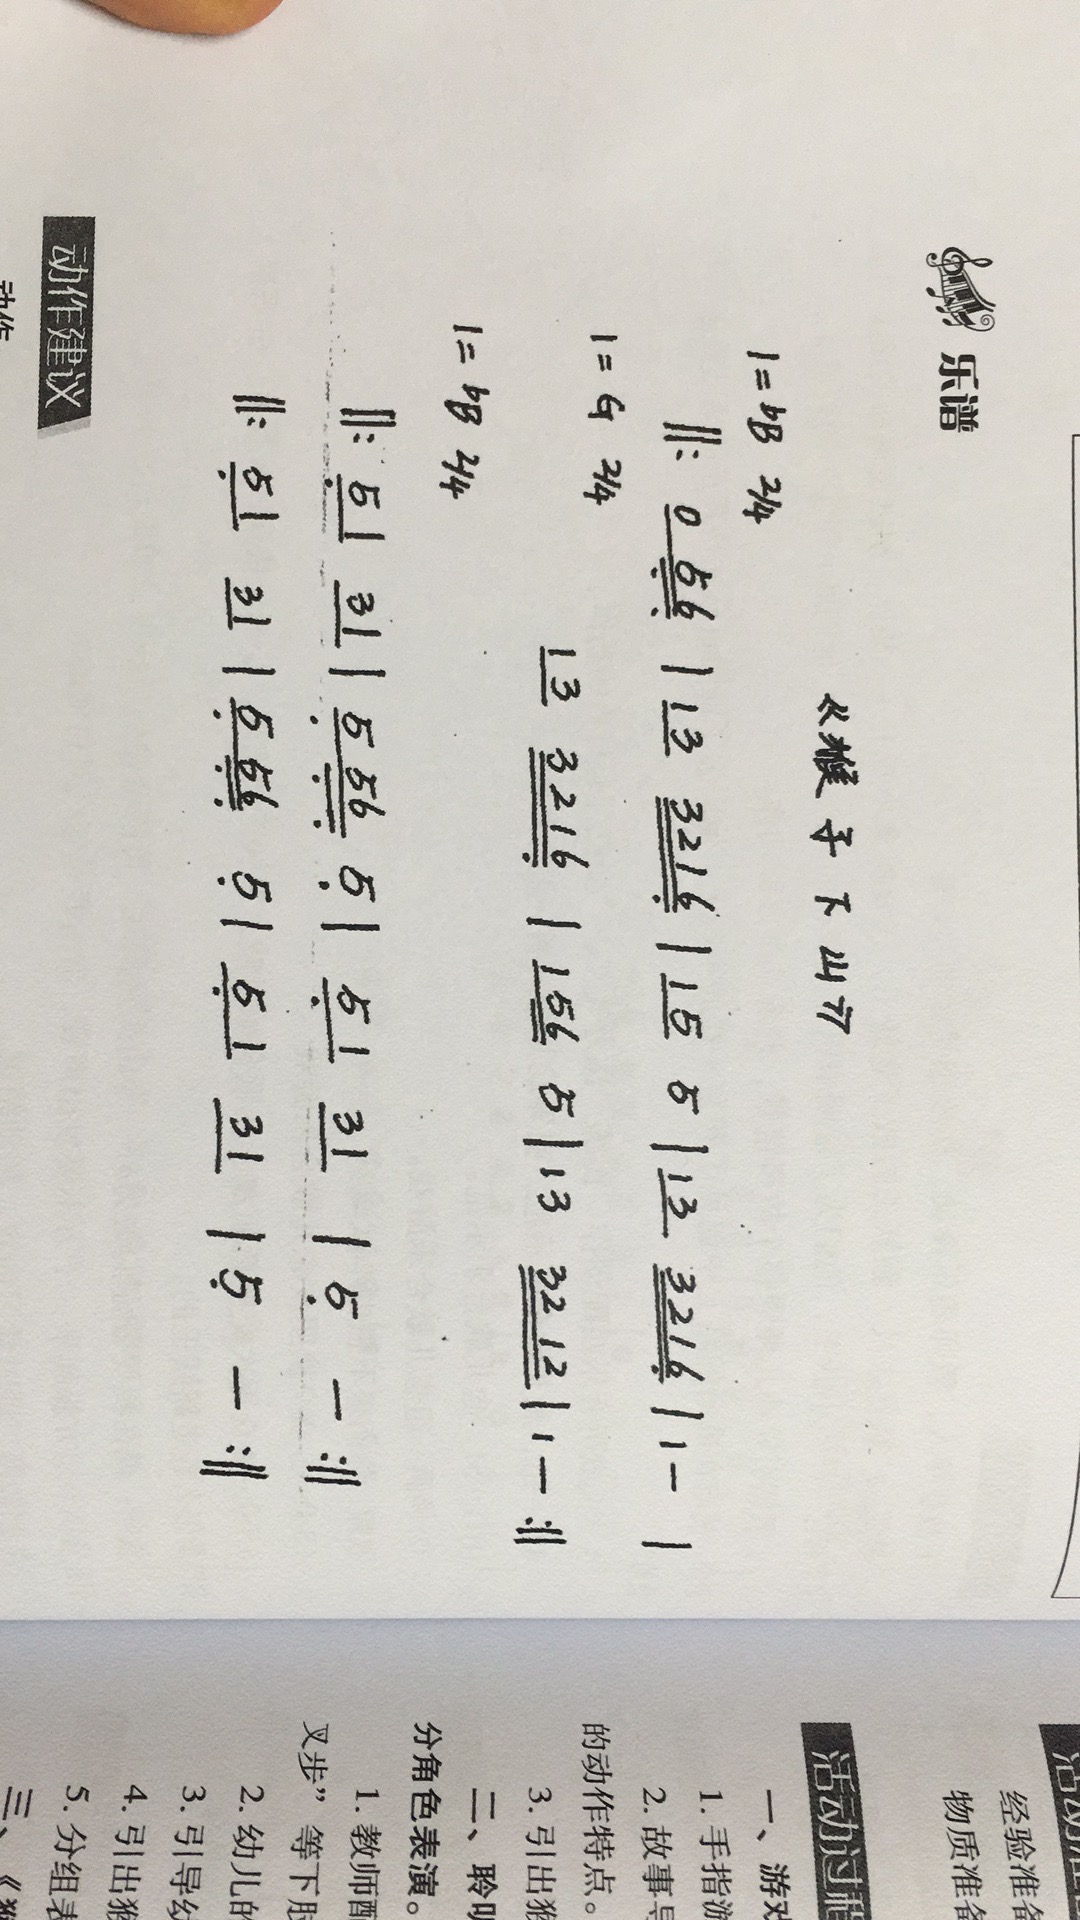 乐谱
《猴子下山》
1=bB 2/4
‖: 0 56 | 13 3216 | 15 5 | 13 3216 | 1 — |
1=G 2/4
13 3216 | 156 5 | 13 3212 | 1 — :‖
1=bB 2/4
‖: 51 31 | 5 56 5 | 51 31 | 5 — :‖
‖: 51 31 | 5 56 5 | 51 31 | 5 — :‖
动作建议
动作
经验准备
物质准备
活动过程
一、游戏
1. 手指游
2. 故事
的动作特点。
3. 引出猴
二、聆听
分角色表演。
1. 教师
叉步”等下肢
2. 幼儿的
3. 引导幼
4. 引出猴
5. 分组表
三、《猴